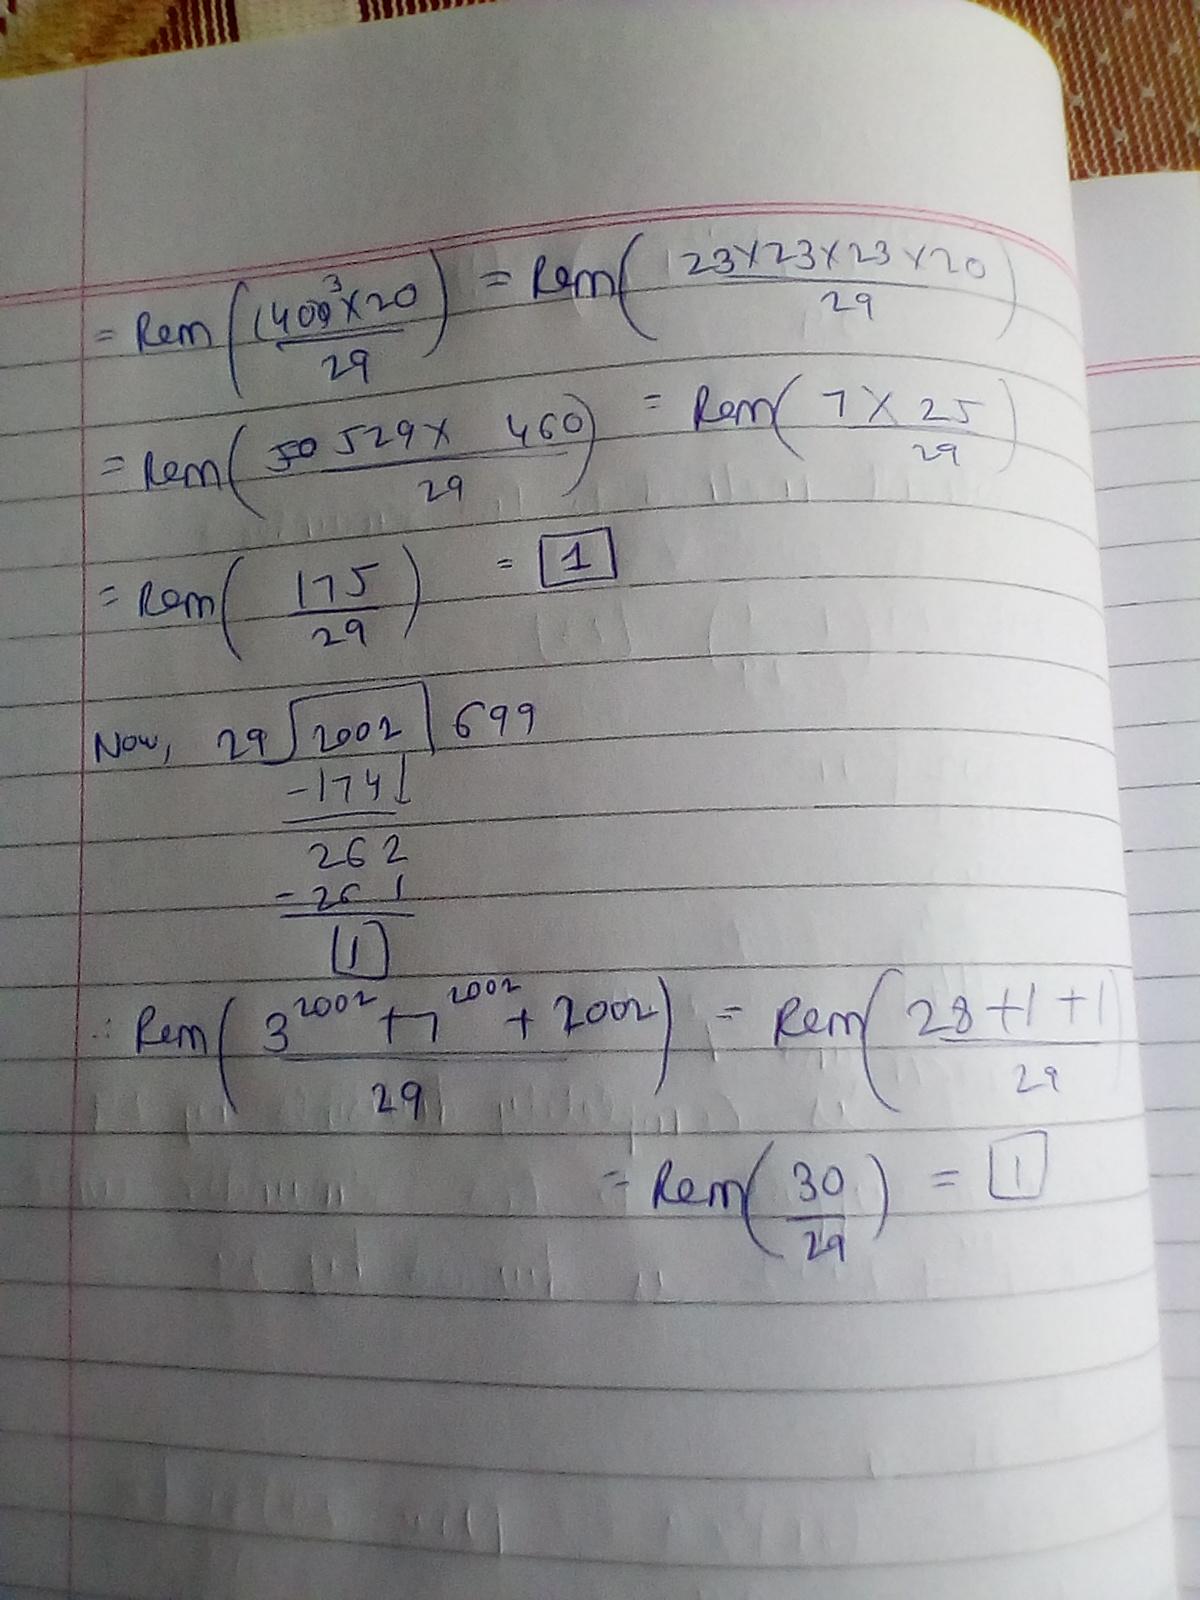 = Rem(400³×20/29) = Rem(23×23×23×20/29)
= Rem(529× 460/29) = Rem(7×25/29)
= Rem(175/29) = 1
Now, 29)2002(699
-174↓
262
-261
1
∴ Rem(3²⁰⁰²+7²⁰⁰²+2002/29) = Rem(28+1+1/29)
= Rem(30/29) = 1